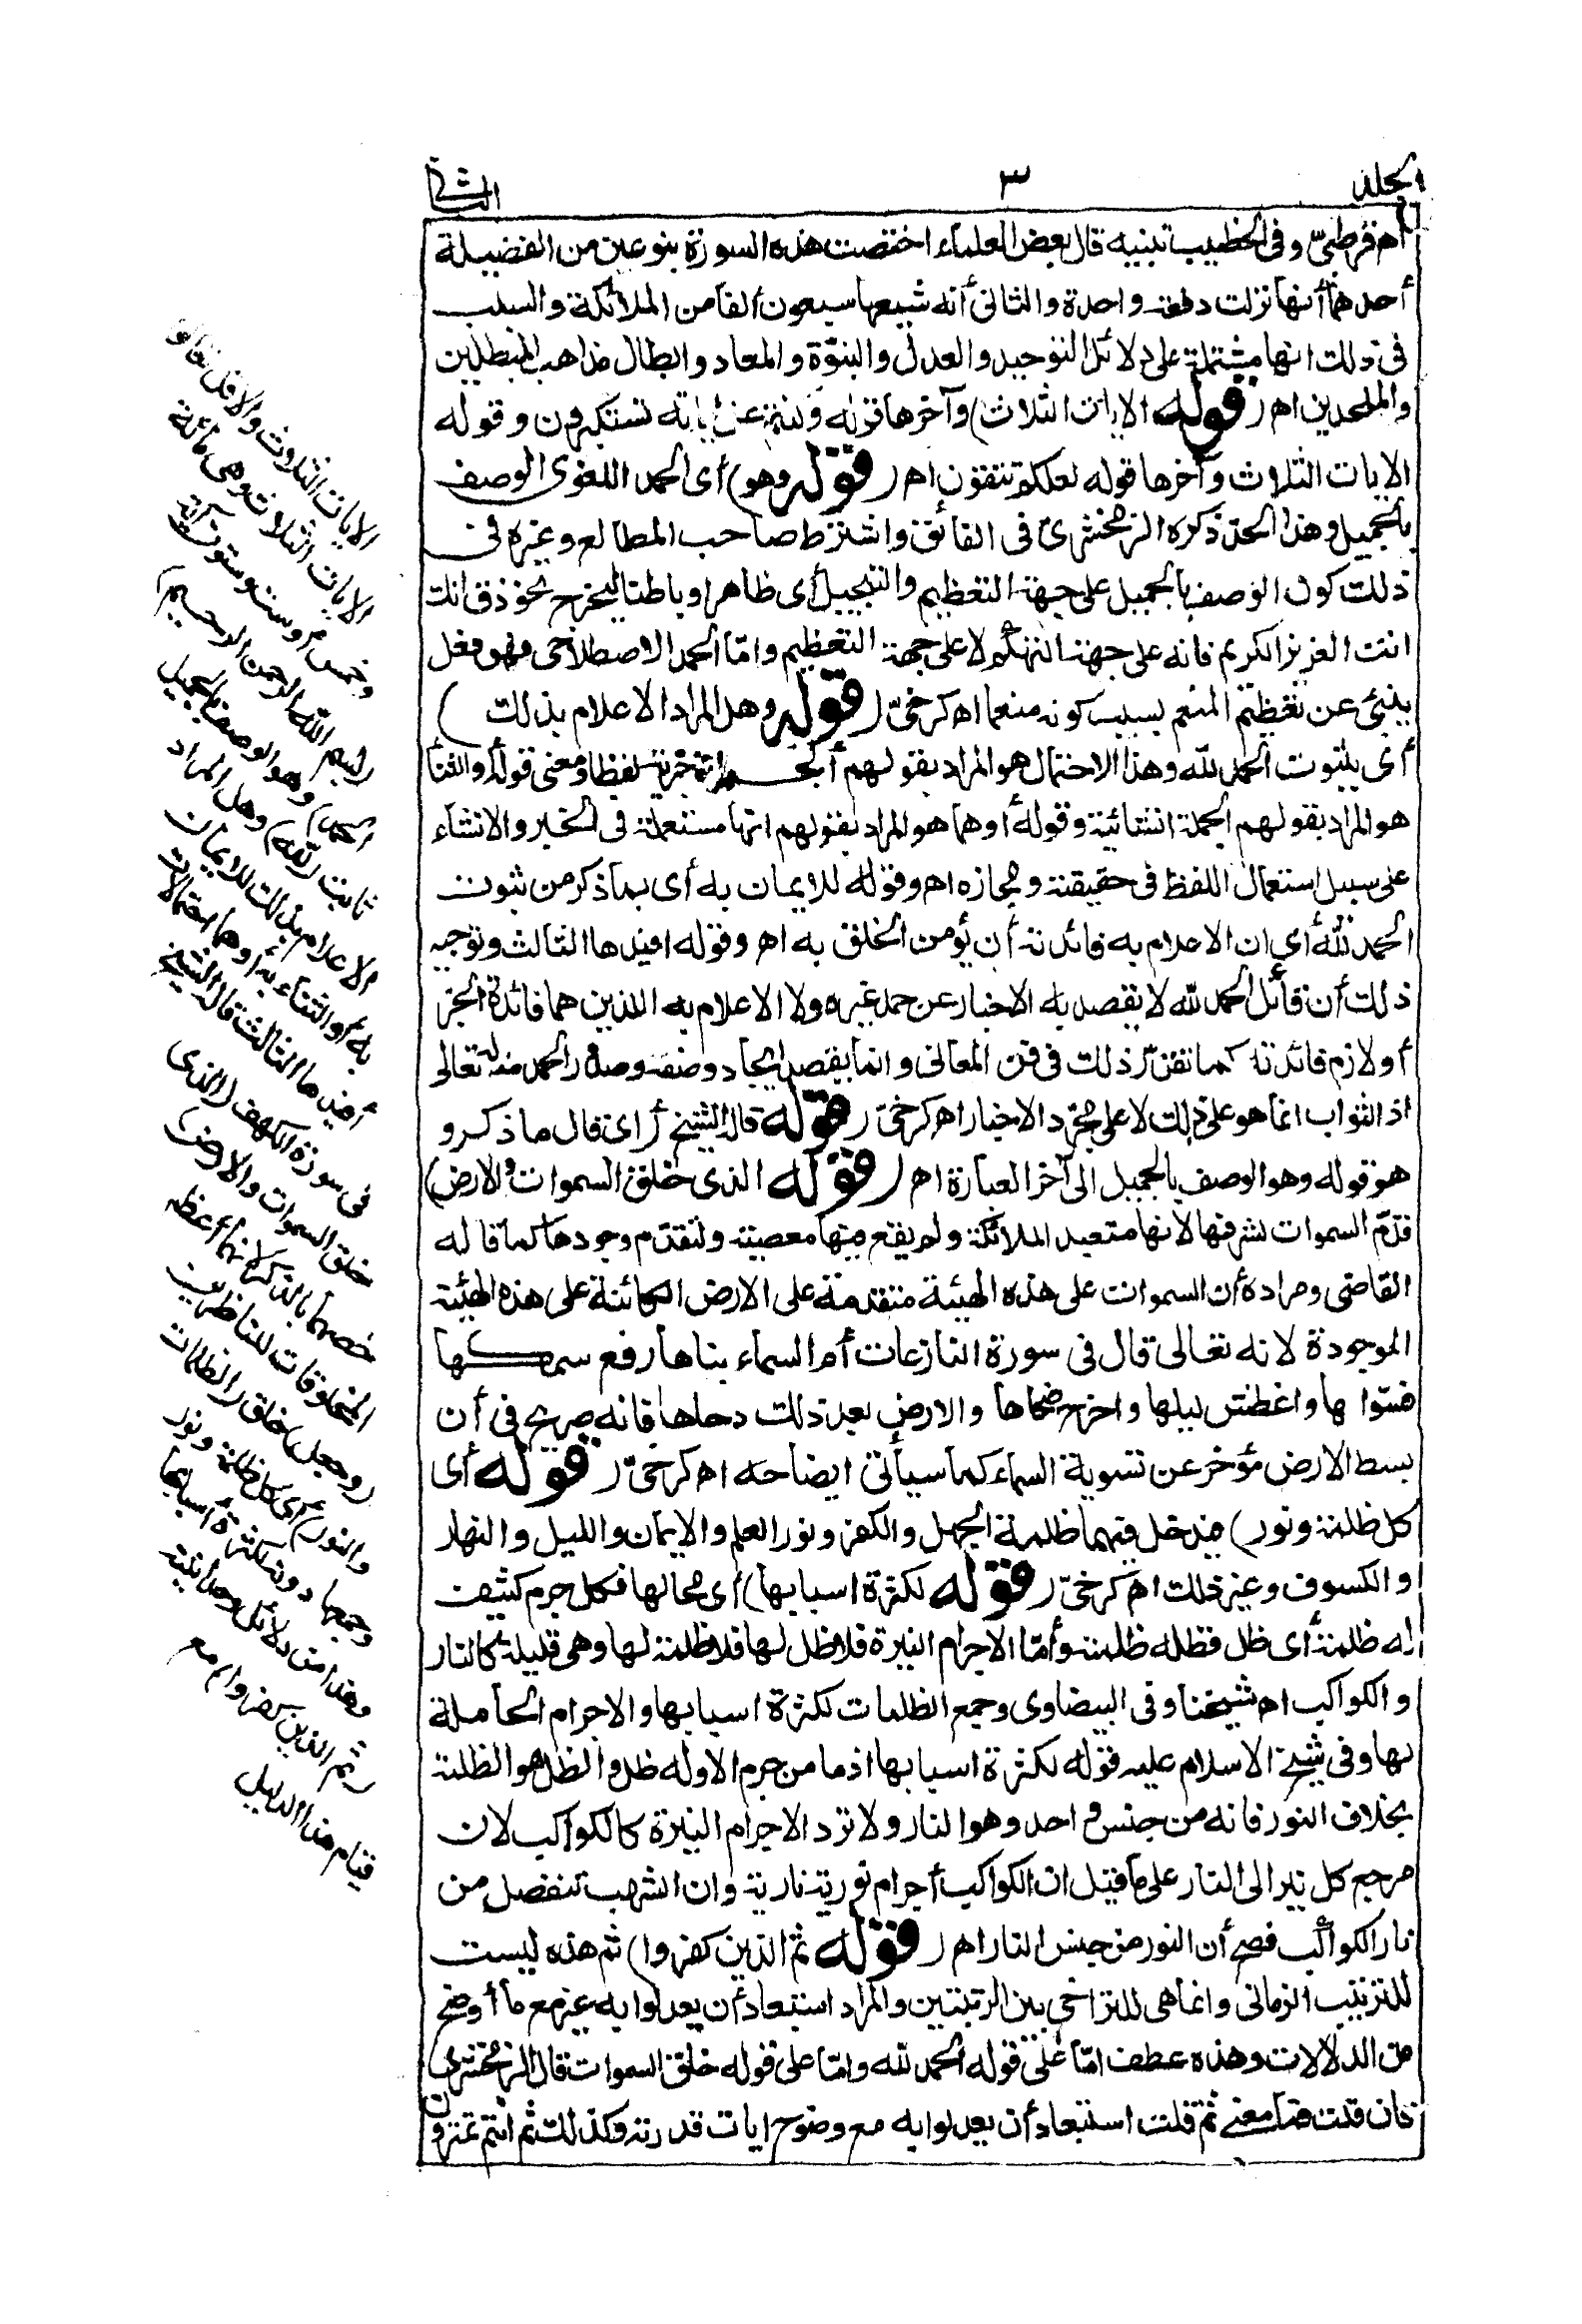 الجلد ٣ الثانى
اهـ قرطبىّ وفى الخطيب تنبيه قال بعض العلماء اختصت هذه السورة بنوعين من الفضيلة
أحدهما أنها نزلت دفعة واحدة والثانى أنه شيعها سبعون ألفا من الملائكة والسبب
فى ذلك انها مشتملة على دلائل التوحيد والعدل والنبوّة والمعاد وابطال مذاهب المبطلين
والملحدين اهـ (قوله الايات الثلاث) وآخرها قوله وكنتم عن آياته تستكبرون وقوله
الايات الثلاث وآخرها قوله لعلكم تتقون اهـ (قوله وهو) أى الحمد اللغوى الوصف
بالجميل وهذا الحدّ ذكره الزمخشرىّ فى الفائق واشترط صاحب المطالع وغيره فى
ذلك كون الوصف بالجميل على جهة التعظيم والتبجيل أى ظاهرا وباطنا ليخرج نحو ذق انك
انت العزيز الكريم فانه على جهة التهكم لا على جهة التعظيم وامّا الحمد الاصطلاحى فهو فعل
ينبئ عن تعظيم المنعم بسبب كونه منعما اهـ كرخىّ (قوله وهل المراد الاعلام بذلك)
أى بثبوت الحمد لله وهذا الاحتمال هو المراد بقولهم الجملة خبرية لفظا ومعنى قوله أو الثناء
هو المراد بقولهم الجملة انشائية وقوله أو هما هو المراد بقولهم انها مستعملة فى الخبر والانشاء
على سبيل استعمال اللفظ فى حقيقته ومجازه اهـ وقوله للايمان به أى بما ذكر من ثبوت
الحمد لله أى ان الاعلام به فائدته أن يؤمن الخلق به اهـ وقوله افيدها الثالث وتوجيه
ذلك أن قائل الحمد لله لا يقصد به الاخبار عن حمد غيره ولا الاعلام به اللذين هما فائدة الخبر
أو لازم فائدته كما تقرّر ذلك فى فن المعانى وانما يقصد ايجاد وصفه وصدور الحمد منه له تعالى
اذ الثواب انما هو على ذلك لا على مجرّد الاخبار اهـ كرخىّ (قوله قاله الشيخ) أى قال ما ذكر و
هو قوله وهو الوصف بالجميل الى آخر العبارة اهـ (قوله الذى خلق السموات والارض)
قدّم السموات لشرفها لانها متعبد الملائكة ولم يقع فيها معصية ولتقدّم وجودها كما قاله
القاضى ومراده أن السموات على هذه الهيئة متقدمة على الارض الكائنة على هذه الهيئة
الموجودة لانه تعالى قال فى سورة النازعات أم السماء بناها رفع سمكها
فسوّاها واغطش ليلها واخرج ضحاها والارض بعد ذلك دحاها فانه صريح فى أن
بسط الارض مؤخر عن تسوية السماء كما سيأتى ايضاحه اهـ كرخىّ (قوله أى
كل ظلمة ونور) فيدخل فيهما ظلمة الجهل والكفر ونور العلم والايمان والليل والنهار
والكسوف وغير ذلك اهـ كرخىّ (قوله لكثرة اسبابها) أى محالها فكل جرم كثيف
له ظلمة أى ظل فظله ظلمة وأمّا الاجرام النيرة فلا ظل لها فلا ظلمة لها وهى قليلة كالنار
والكواكب اهـ شيخنا وفى البيضاوى وجمع الظلمات لكثرة اسبابها والاجرام الحاملة
لها وفى شيخ الاسلام عليه قوله لكثرة اسبابها اذ ما من جرم الا وله ظل والظل هو الظلمة
بخلاف النور فانه من جنس واحد وهو النار ولا ترد الاجرام النيرة كالكواكب لان
مرجع كل نير الى النار على ما قيل ان الكواكب أجرام نورية نارية وان الشهب تنفصل من
نار الكواكب فصح أن النور من جنس النار اهـ (قوله ثم الذين كفروا) ثم هذه ليست
للترتيب الزمانى وانما هى للتراخى بين الرتبتين والمراد استبعاد أن يعدلوا به غيره مع ما أوضح
من الدلالات وهذه عطف امّا على قوله الحمد لله وامّا على قوله خلق السموات قال الزمخشرىّ
فان قلت فما معنى ثم قلت استبعاد أن يعدلوا به مع وضوح ايات قدرته وكذلك ثم انتم تمترون
الايات الثلاث والاقل تعالوا
الايات الثلاث وهى مائة
وخمس أو ست وستون آية
(بسم الله الرحمن الرحيم)
(الحمد) وهو الوصف بالجميل
ثابت (لله) وهل المراد
الاعلام بذلك للايمان
به أو الثناء به أو هما احتمالات
أفيدها الثالث قال الشيخ
فى سورة الكهف (الذى
خلق السموات والارض)
خصهما بالذكر لانهما أعظم
المخلوقات للناظرين
(وجعل) خلق (الظلمات
والنور) أى كل ظلمة ونور
وجمعها دونه لكثرة أسبابها
وهذا من دلائل وحدانيته
(ثم الذين كفروا) مع
قيام هذا الدليل